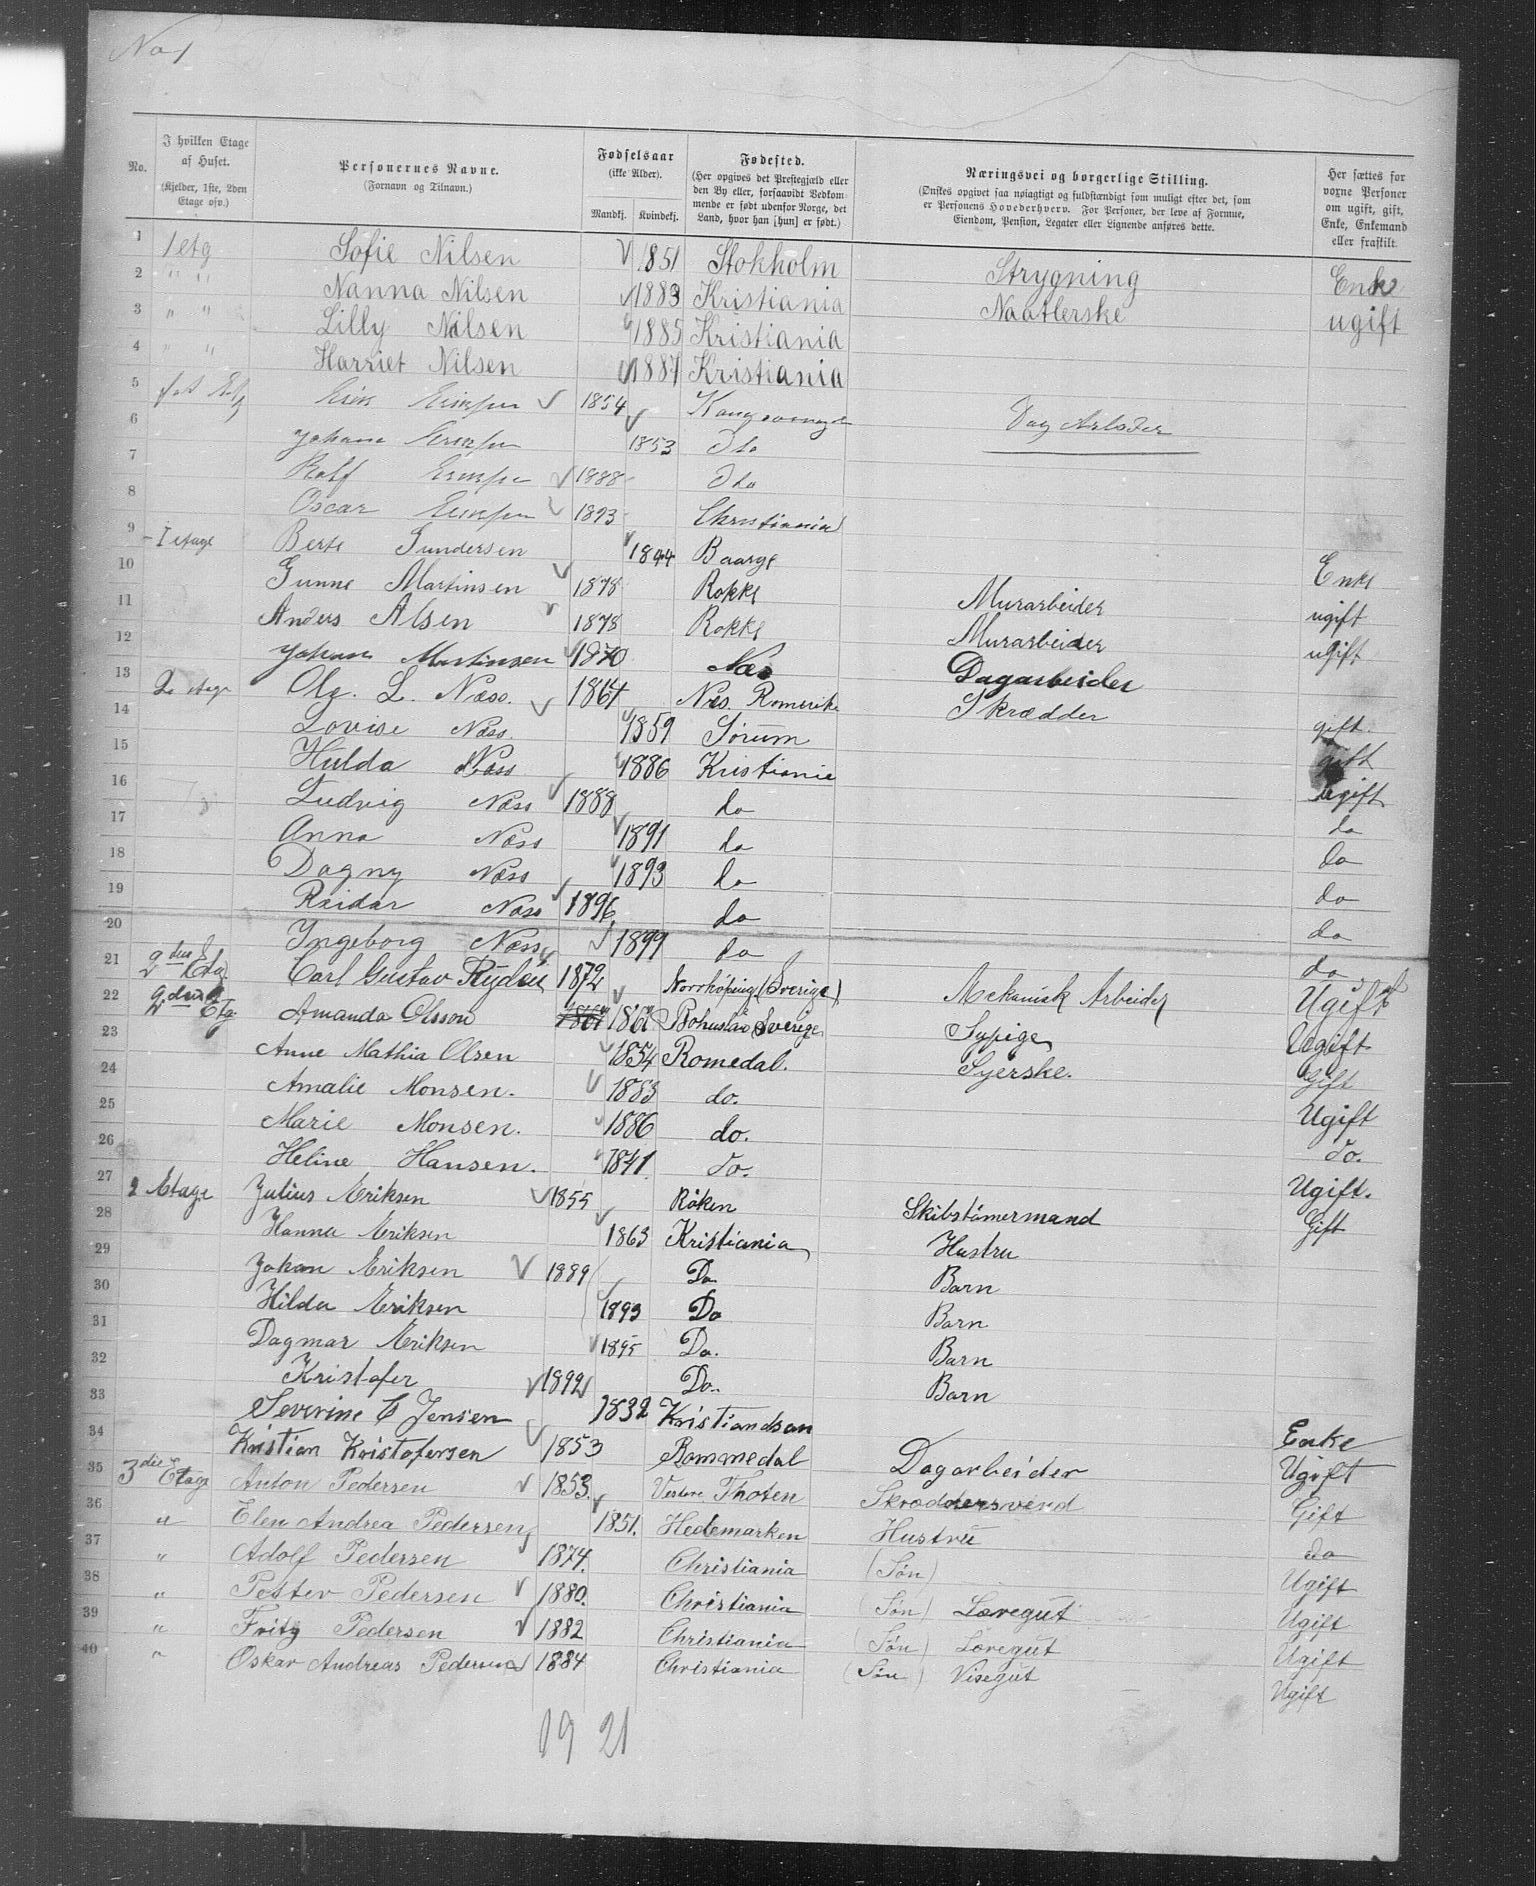 No 1
No. | I hvilken Etage af Huset. (Kjelder, 1ste, 2den Etage osv.) | Personernes Navne. (Fornavn og Tilnavn.) | Fødselsaar (ikke Alder). Mandkj. Kvindekj. | Fødested. (Her opgives det Prestegjæld eller den By eller, forsaavidt Vedkommende er født udenfor Norge, det Land, hvor han [hun] er født.) | Næringsvei og borgerlige Stilling. (Ønskes opgivet saa nøiagtigt og fuldstændigt som muligt efter det, som er Personens Hovederhverv. For Personer, der leve af Formue, Eiendom, Pension, Legater eller Lignende anføres dette. | Her sættes for voxne Personer om ugift, gift, Enke, Enkemand eller fraskilt.
1 1 etg Sofie Nilsen 1851 Stokholm Strygning Enke
2 " " Nanna Nilsen 1883 Kristiania Naatlerske ugift
3 " " Lilly Nilsen 1885 Kristiania
4 " " Harriet Nilsen 1887 Kristiania
5 Erik 1854 Dag Arbeder
6 Johane 1853 Do
7 Rolf 1888 Do
8 Oscar 1893 Christiania
9 I etage Berte Gundersen 1844 Baarge Enke
10 Gunne Martinsen 1878 Rokke Murarbeider ugift
11 Anders Alsen 1878 Rokke Murarbeider ugift
12 Johan Martinsen 1870 Næs Dagarbeider
13 2 etage Ole L. Næss. 1864 Næs. Romerike Skrædder gift
14 Lovise Næss. 1859 Sørum gift
15 Hulda Næss 1886 Kristiania ugift
16 Ludvig Næss 1888 do do
17 Anna Næss 1891 do do
18 Dagny Næss 1893 do do
19 Reidar Næss 1896 do do
20 Ingeborg Næss 1899 do do
21 2den Etg. Carl Gustav Rydén 1872 Norrköping (Sverige) Mekanisk Arbeider Ugift
22 2den Etg Amanda Olsson 1861 Bohuslän Sverige Sypige Ugift
23 Anne Mathia Olsen 1854 Romedal. Syerske. Gift
24 Amalie Monsen. 1883 do. Ugift
25 Marie Monsen. 1886 do. do.
26 Heline Hansen. 1841. do. Ugift.
27 2 Etage Julius Eriksen 1855 Röken Skibstömermand Gift
28 Hanna Eriksen 1863 Kristiania Hustru
29 Johan Eriksen 1889 Do Barn
30 Hilda Eriksen 1893 Do Barn
31 Dagmar Eriksen 1895 Do. Barn
32 Kristofer 1892 Do. Barn
33 Severine C Jensen 1832 Kristiandsan Enke
34 Kristian Kristofersen 1853 Rommedal Dagarbeider Ugift
35 3die Etage Anton Pedersen 1853. Vestre Thoten Skreddersvend Gift
36 " Elen Andrea Pedersen 1851. Hedemarken Hustru do
37 " Adolf Pedersen 1874. Christiania (Søn) Ugift
38 " Petter Pedersen 1880. Christiania (Søn) Læregut Ugift
39 " Fritz Pedersen 1882 Christiania (Søn) Læregut Ugift
40 " Oskar Andreas Pedersen 1884 Christiania (Søn) Visegut Ugift
19 21